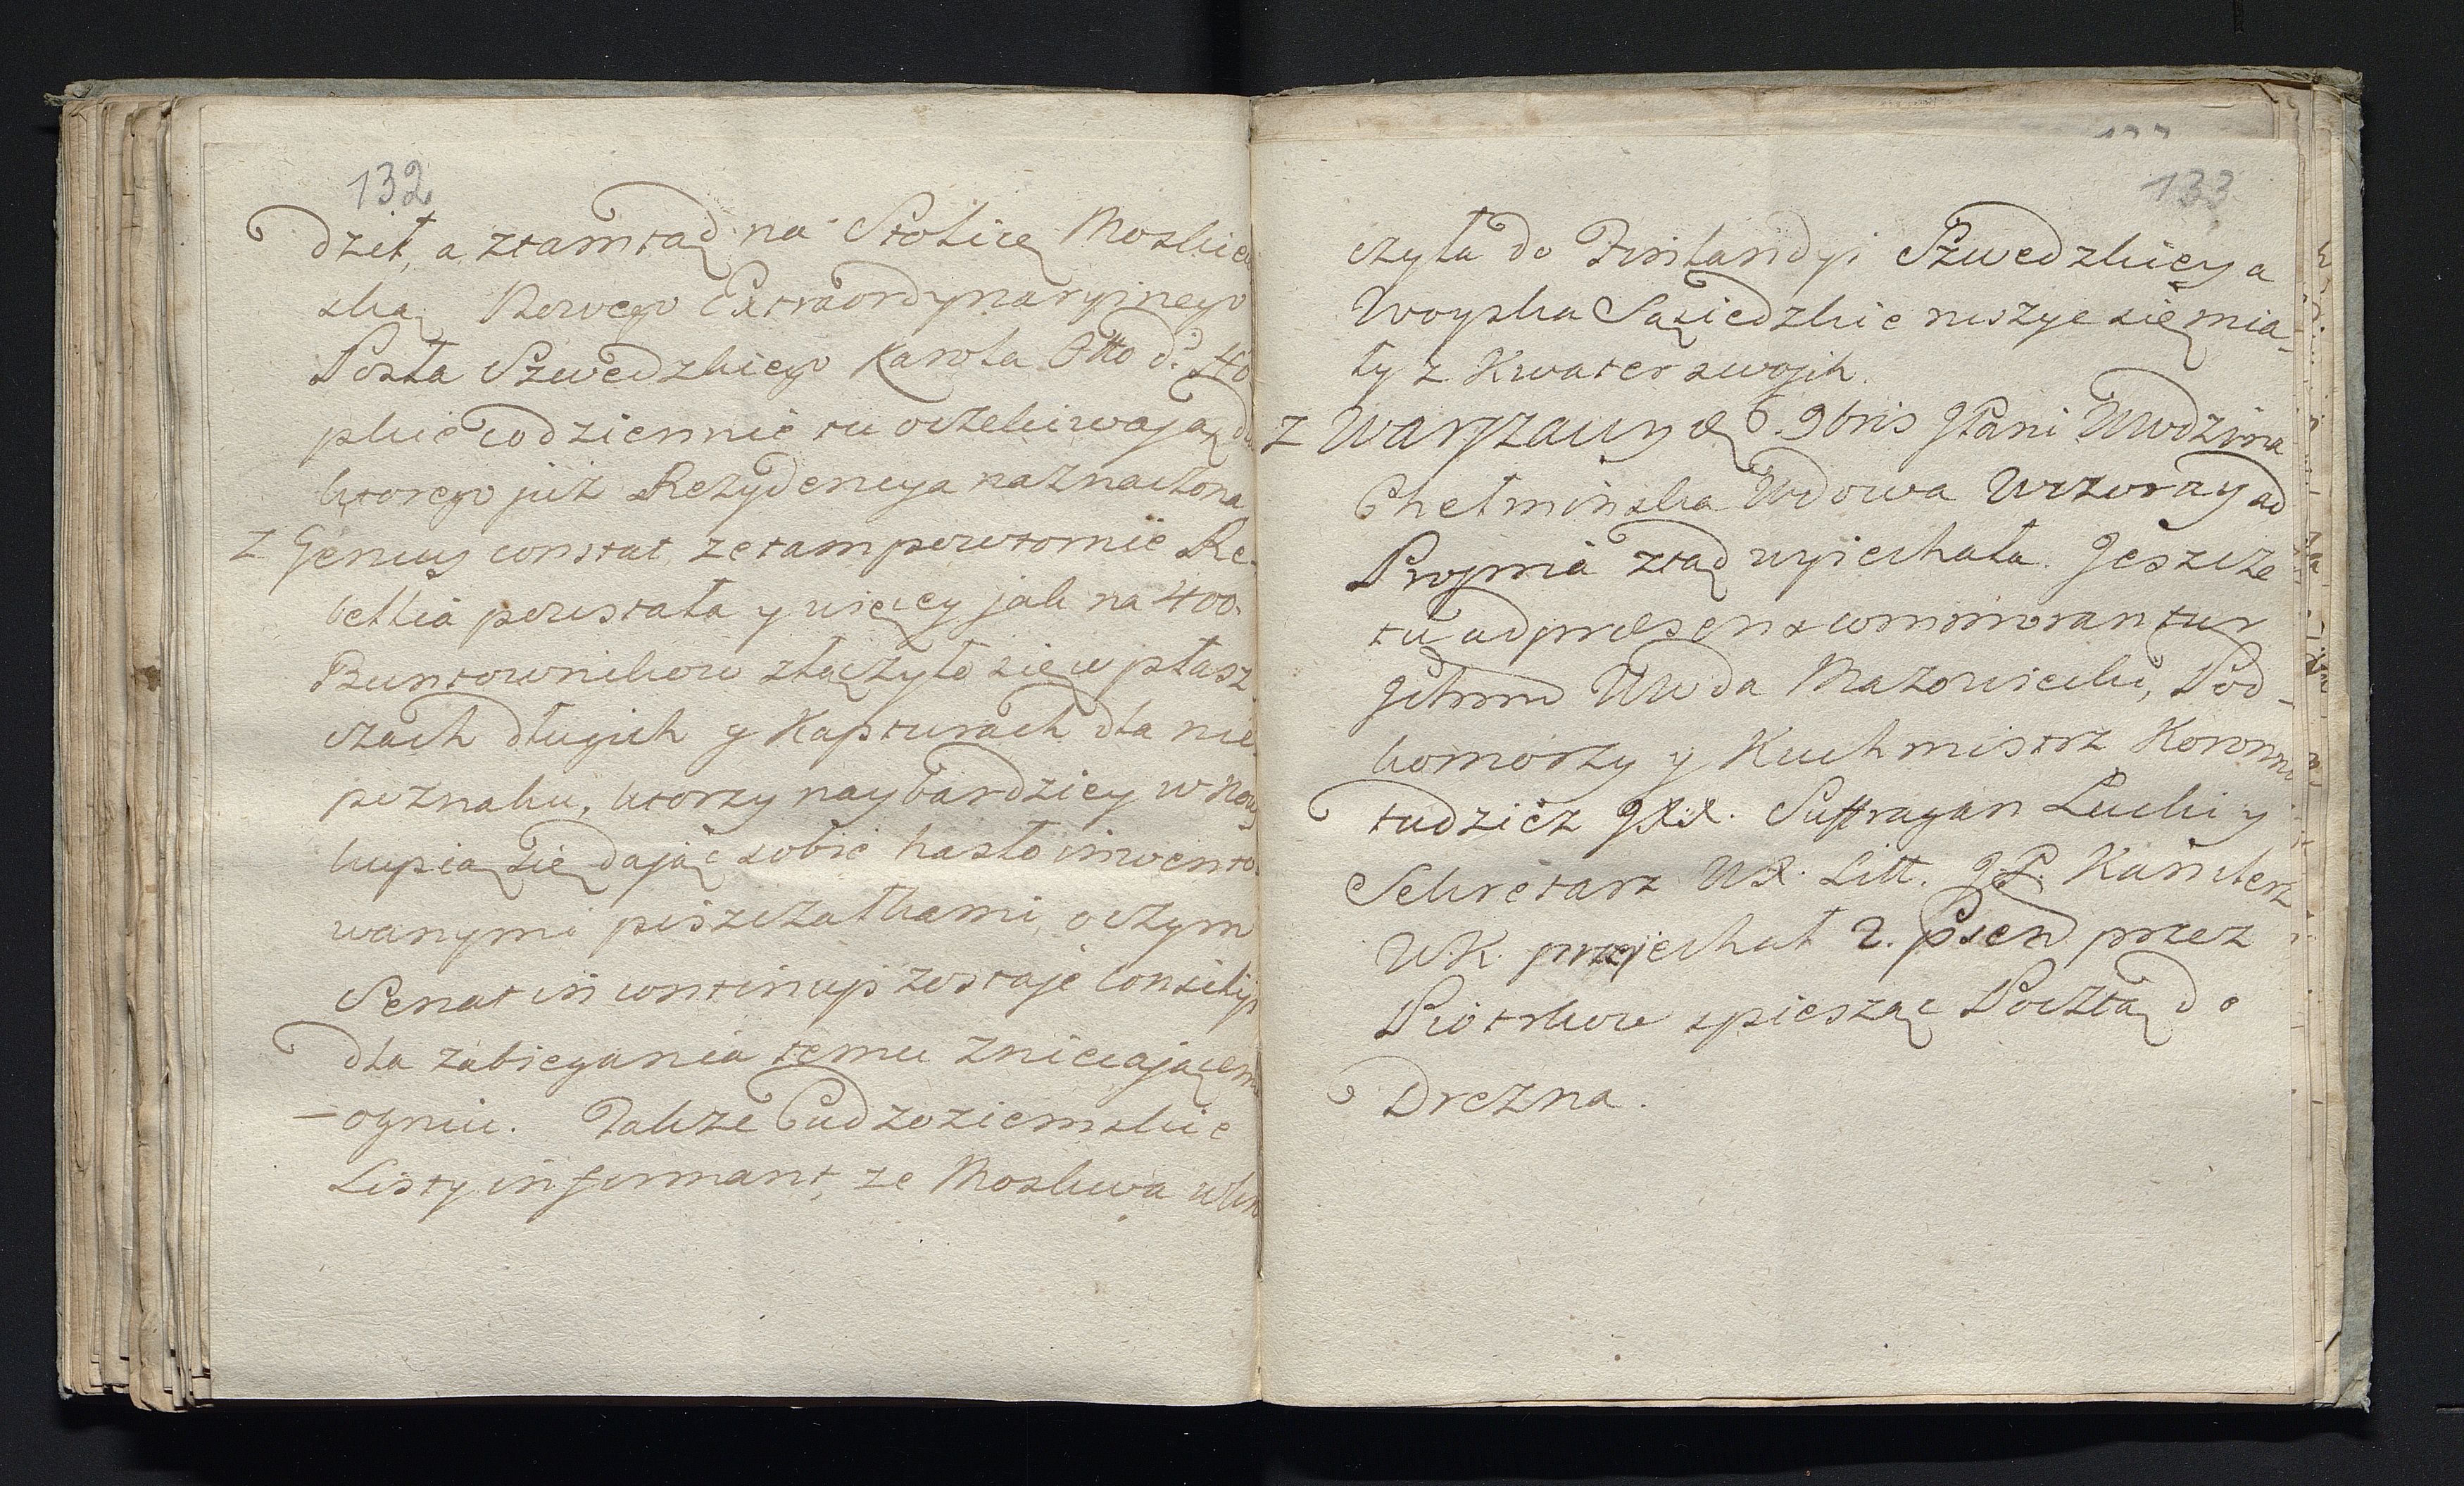 132
dził, a ztamtąd na Stolicę Moskiew
ską Nowego Extraordynaryinego
Posła Szwedzkiego Karola Otto d. Ho
pkie codziennie tu oczekiwają dla
ktorego już Rezydencya naznaczona
Z Genuy constat ze tam powtornie Re-
bellia powstała y więcy jak na 400.
Buntownikow złączyło się w płasz
czach długich y Kapturach dla nie
poznaku, ktorzy naybardziey w Nocy
kupią się dając sobie hasło inwento
wanymi piszczałkami, o czym
Senat in continuis zostaje Consilijs
dla zabiegania temu znieciającemu
- ogniu. Także Cudzoziemskie
Listy informant, ze Moskwa wkro
133
czyła do Finlandyi Szwedzkiey a
Woyska Sąsiedzkie ruszyc się mia-
ły z Kwater swoich.
Z Warszawy d. 6. 9bris JPani Wwdzina
Chełminska Wdowa wczoray ad
Propria ztąd wyjechała. Jeszcze
tu ad præsens commorantur
Ichmm Wwda Mazowiecki, Pod-
komorzy y Kuchmistrz Koronni
tudziez JXX. Suffragan Lucki y
Sekretarz WX. Litt. JP. Kanclerz
W.K. przejechał 2. præsen przez
Piotrkow spiesząc Pocztą do
Drezna.